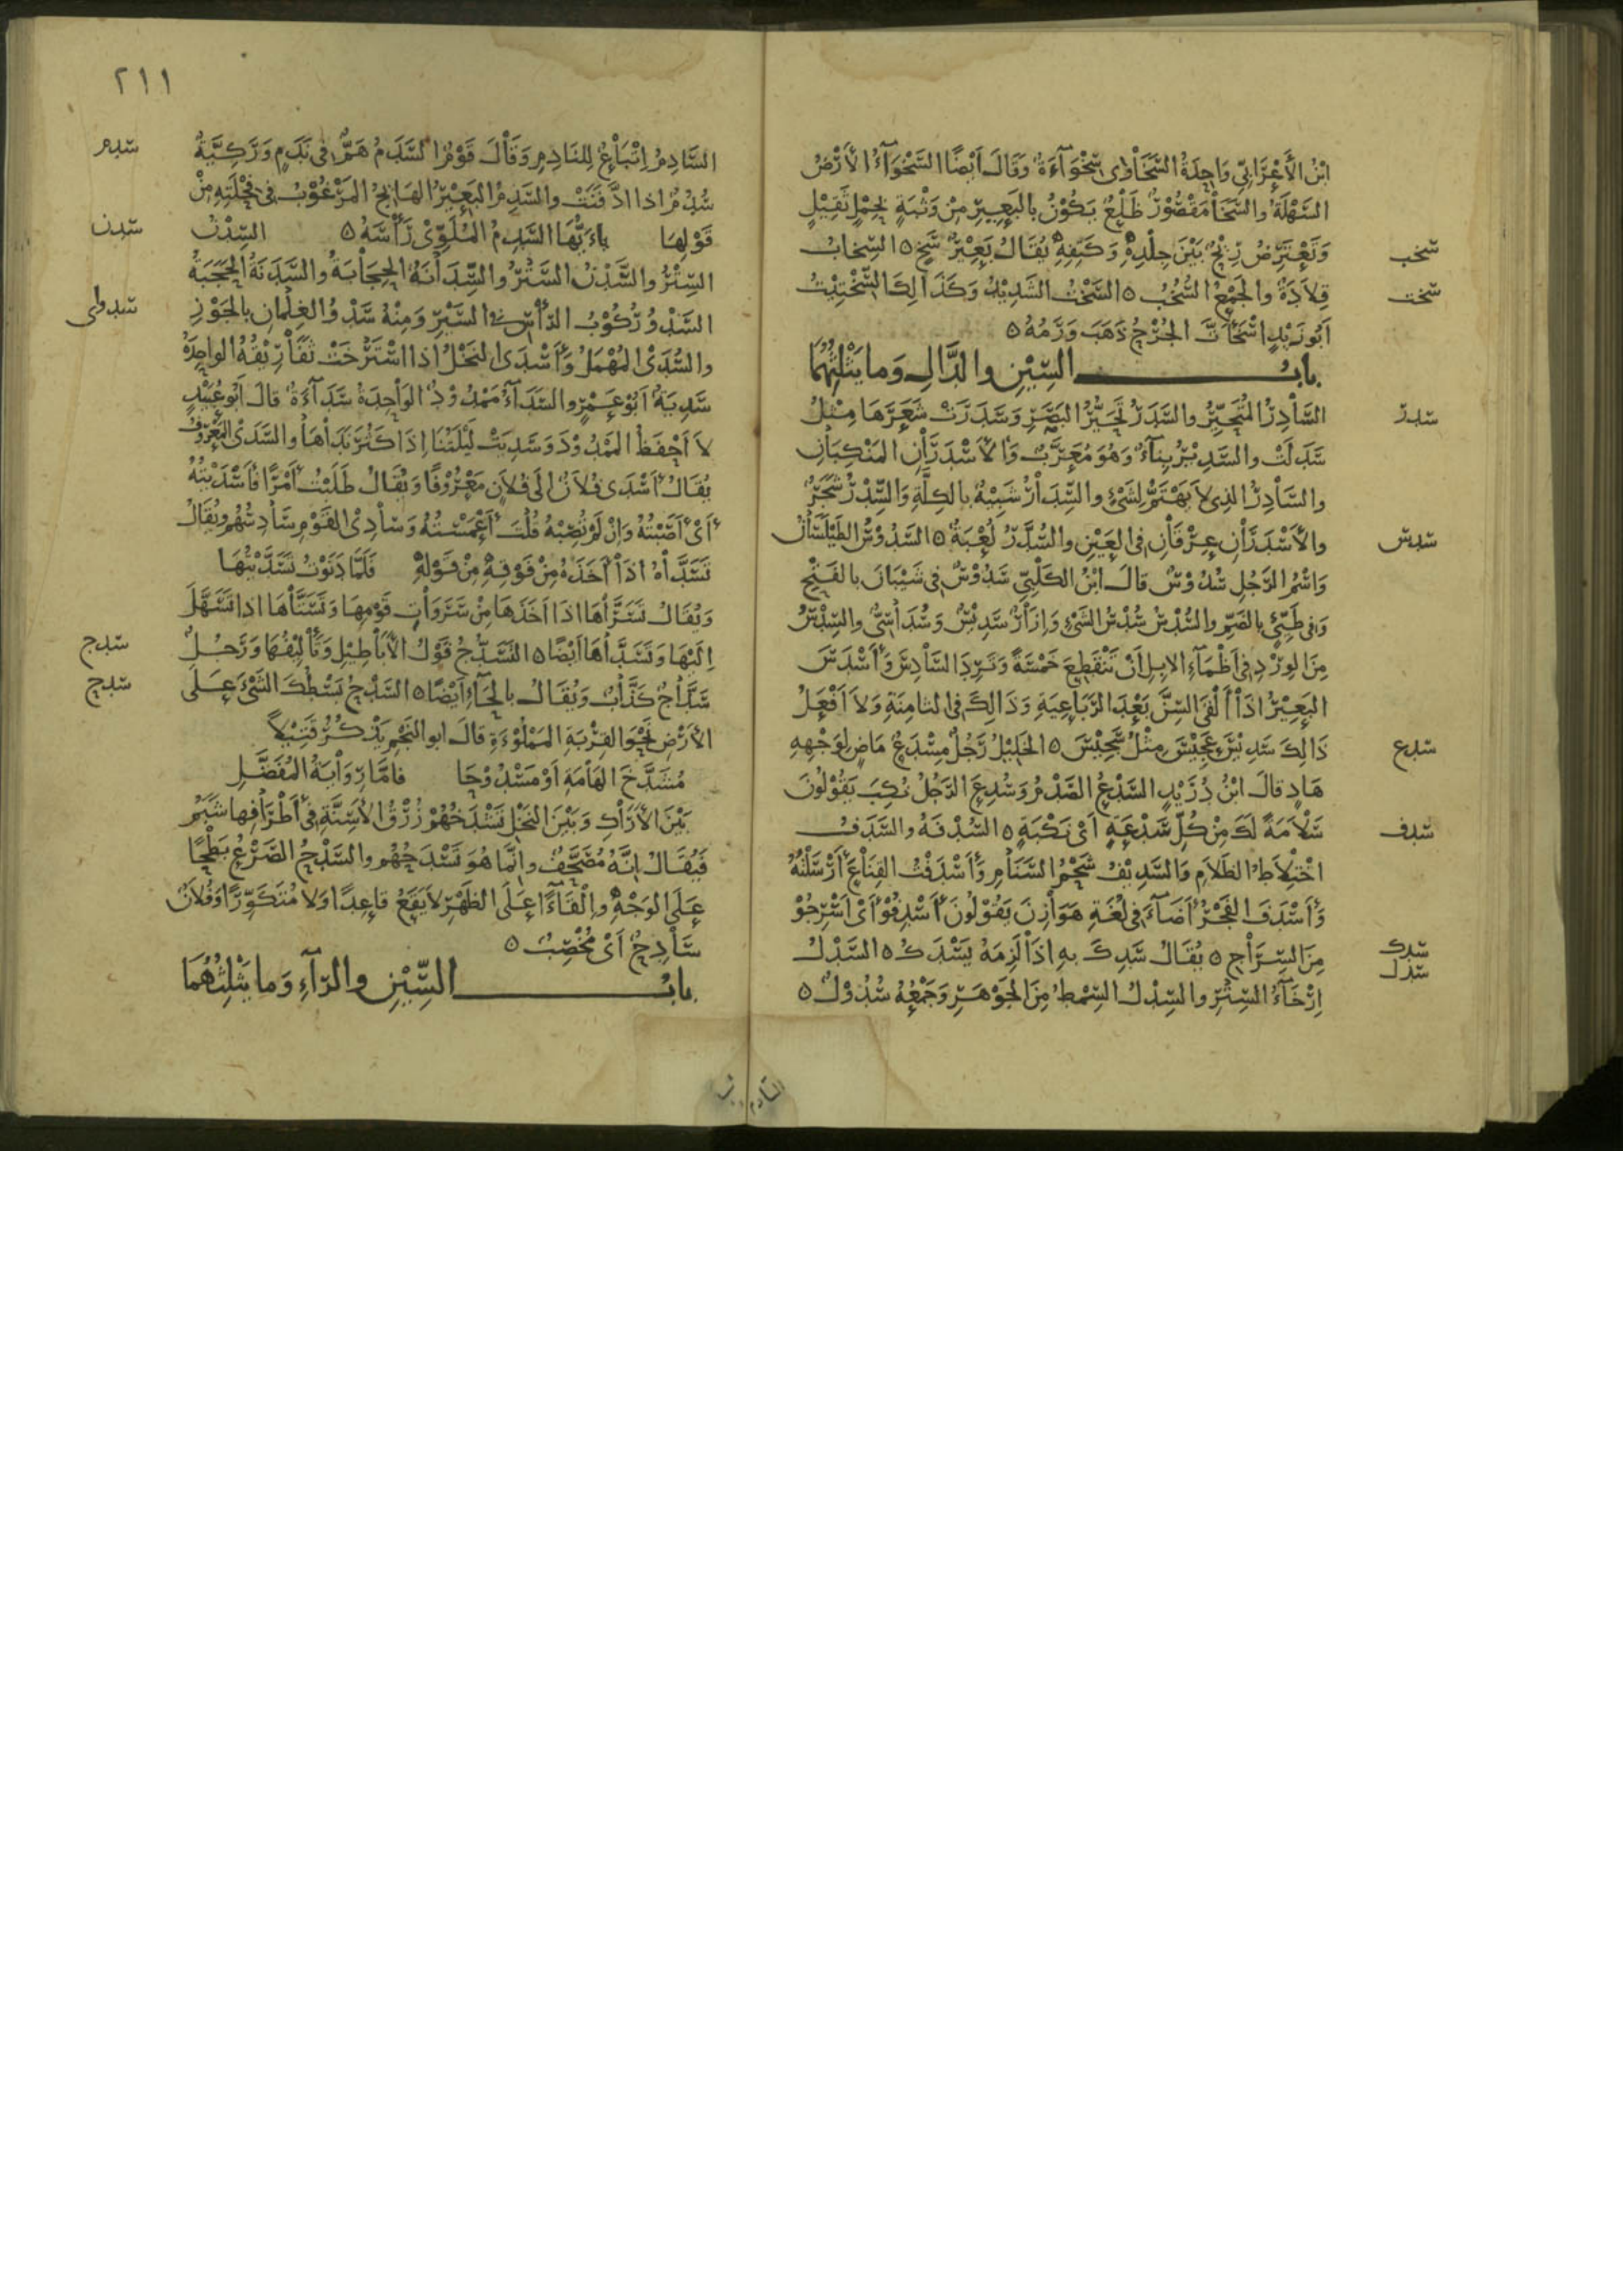 ابْنُ الأَعْرَابِيِّ وَاحِدَةُ السَّخَاْوِى سَخْوَآءَةٌ وَقَالَ اَيْضًا السَّخْوَآءُ الأَرْضُ
السَّهْلَةُ والسَّخَاْ مَقْصُوْرٌ ظَلْعٌ يَكُوْنُ بالبَعِيْرِ مِنْ وَثْبَةٍ بِحِمْلٍ ثَقِيْلٍ
سخب وَتَعْتَرِضُ رِيْحٌ بَيْنَ جِلْدِهِ وَكَتِفِهِ يُقَالُ بَعِيْرٌ سَخٍ ٥ السِّخابُ
سخت قِلاَدَةٌ والجَمْعُ السُّخُبُ ٥ السَّخْتُ الشَّدِيْدُ وَكَذَالِكَ السِّخْتِيْتُ
اَبُوزَيْدٍ اسْخَأْتَّ الجُرْحُ ذَهَبَ وَرَمُهُ ٥
بابُ السِّيْنِ والدَّالِ وَمايَثْلِثُهُمَا
سدر السَّاْدِرُ المُتَحَيِّرُ والسَّدَرُ تَحَيُّرُ البَصَرِ وَسَدَرَتْ شَعَرَهَا مِثْلُ
سَدَلَتْ والسَّدِيْرُ بِنَآءٌ وَهُوَ مُعَرَّبٌ وَالأَسْدَرَاْنِ المَنْكِبَاْنِ
والسَّاْدِرُ الذِى لاَ يَهْتَمُّ لِشَىْءٍ والسِّدَاْرُ شَبِيْهٌ بالكِلَّةِ وَالسِّدْرُ شَجَرٌ
سدس والأَسْدَرَاْنِ عِرْقَاْنِ فى العَيْنِ والسُّدَّرُ لُعْبَةٌ ٥ السَّدُوْسُ الطَّيْلَسَاْنُ
وَاسْمُ الرَّجُلِ سُدُوْسٌ قالَ ابْنُ الكَلْبِىِّ سَدُوْسٌ فى شَيْبَانَ بالفَتْحِ
وَفى طَيِّئٍ بالضَمِّ والسُّدْسُ سُدْسُ الشَىْءِ وَاِزَاْرٌ سَدِيْسٌ وَسُدَاْسِىٌّ والسِّدْسُ
مِنَ الوِرْدِ فى اَظْمَآءِ الابِلِ اَنْ تَنْقَطِعَ خَمْسَةً وَتَرِدَ السَّاْدِسَ وَأَسْدَسَ
البَعِيْرُ اذَاْ اَلْقَى السِّنَّ بَعْدَ الرَّبَاْعِيَةِ وَذَالِكَ فى الثامِنَةِ وَلاَ اَفْعَلُ
سدع ذَالِكَ سَدِيْسَ عَجِيْسَ مِثْلُ سَجِيْسَ ٥ الخَلِيْلُ رَجُلٌ مِسْدَعٌ مَاضٍ لِوَجْهِهِ
هَادٍ قالَ ابْنُ دُرَيْدٍ السَّدْعُ الصَّدْمُ وَسُدِعَ الرَّجُلُ نُكِبَ يَقُوْلُونَ
سدف سَلاْمَةً لَكَ مِنْ كُلِّ سَدْعَةٍ اَىْ نَكْبَةٍ ٥ السُّدْفَةُ والسَّدَفُ
اخْتِلاَطُ الظَلاَمِ وَالسَّدِيْفُ شَحْمُ السَّنَاْمِ وَأَسْدَفْتُ القِنَاْعَ أَرْسَلْتُهُ
وَأَسْدَفَ الفَجْرُ أَضَآءَ فى لُغَةِ هَوَاْزِنَ يَقُوْلُونَ أَسْدِفُوْ أَىْ اَسْرِجُوْ
سدك مِنَ السِّرَاْجِ ٥ يُقَالُ سَدِكَ بهِ اذَاْ لَزِمَهُ يَسْدَكُ ٥ السَّدْلُ
سدل اِرْخَآءُ السِّتْرِ والسِّدْلُ السِّمْطُ مِنَ الجَوْهَرِ وَجَمْعُهُ سُدُوْلٌ ٥
السّادم
٢١١
سدم السَّادِمُ اِتْبَاْعٌ لِلنَادِمِ وَقَاْلَ قَوْمٌ السَّدَمُ هَمٌّ فى نَدَمٍ وَرَكِيَّةٌ
سُدُمٌ اذا ادَّفَنَتْ والسَّدِمُ البَعِيْرُ الهَائِجُ المَرْغُوْبُ فى فِحْلَتِهِ مِنْ
سدن قَوْلِهَا ياءَيُّهَا السَّدِمُ المُلَوِّىْ رَأْسَهُ ٥ السِّدْنُ
السِّتْرُ والسَّدْنُ السَّتْرُ والسِّدَاْنَةُ الحِجَاْبَةُ والسَّدَنَةُ الحَجَبَةُ
سدواى السَّدْوُ رُكُوْبُ الرَّأْسِ فى السَّيْرِ وَمِنْهُ سَدْوُ الغِلْمَانِ بالجَوْزِ
والسُّدَىْ المُهْمَلُ وَأَسْدَى النَخْلُ اذا اسْتَرْخَتْ ثَفَاْرِيْقُهُ الواحِدَةُ
سَدِيَةٌ اَبُوْعَمْرٍو السَّدَآءُ مَمْدُوْدٌ الوَاْحِدَةُ سَدَآءَةٌ قالَ اَبُوعُبَيْدٍ
لاَ اَحْفَظُ المَمْدُوْدَ وَسَدِيَتْ لَيْلَتُنَا اِذَا كَثُرَ نَدَاْهَا والسَّدَىْ المَعْرُوْفُ
يُقَالُ أَسْدَى فُلاَنٌ الَى فُلاَنٍ مَعْرُوْفًا وَيُقَالُ طَلَبْتُ أَمْرًا فَأَسْدَيْتُهُ
أَىْ أَصَبْتُهُ وَاِنْ لَمْ تُصِبْهُ قُلْتَ أَعْمَسْتُهُ وَسَاْدِىْ القَوْمِ سَاْدِسُهُمْ وَيُقَالُ
تَسَدَّاهُ اذَاْ أَخَذَهُ مِنْ فَوْقِهِ مِنْ قَوْلِهِ فَلَمَّا دَنَوْتُ تَسَدَّيْتُهَا
وَيُقَالُ تَسَرَّاْهَا اذَا اَخَذَهَا مِنْ سَرَوَاْتِ قَوْمِهَا وَتَسَنَّاْهَا اذا تَسَهَّلَ
سدج اِلَيْهَا وَتَسَدَّاْهَا اَيْضًا ٥ التَسَدُّجُ قَوْلُ الأَبَاْطِيْلِ وَتَأْلِيْفُهَا وَرَجُلٌ
سدح سَدَّاْجٌ كَذَّاْبٌ وَيُقَالُ بالحَآءِ اَيْضًا ٥ السَّدْحُ بَسْطُكَ الشَىْءَ عَلَى
الأَرْضِ نَحْوَ القِرْبَةِ المَمْلُوْءَةِ قالَ ابو النَّجْمِ يَذْكُرُ قَتِيْلاً
مُشَدَّخَ الهَاْمَةِ اَوْ مَسْدُوْحَا فامَّا رِوَاْيَةُ المُفَضَّلِ
بَيْنَ الأَرَاْكِ وَبَيْنَ النَخْلِ تَشْدَخُهُمْ زُرْقُ الأَسِنَّةِ فى أَطْرَاْفِها شَبَمُ
فَيُقَالُ اِنَّهُ مُصَحَّفٌ وانَّما هُوَ تَسْدَحُهُمْ والسَّدْحُ الصَّرْعُ بَطْحًا
عَلَى الوَجْهِ واِلْقَآءًا عَلَى الظَهْرِ لاَ يَقَعُ قاعِدًا وَلا مُتَكَوِّرًا وَفُلاَنٌ
سَاْدِحٌ اَىْ مُخْصِبٌ ٥
بابُ السِّيْنِ والرَّآءِ وَمايَثْلِثُهُمَا